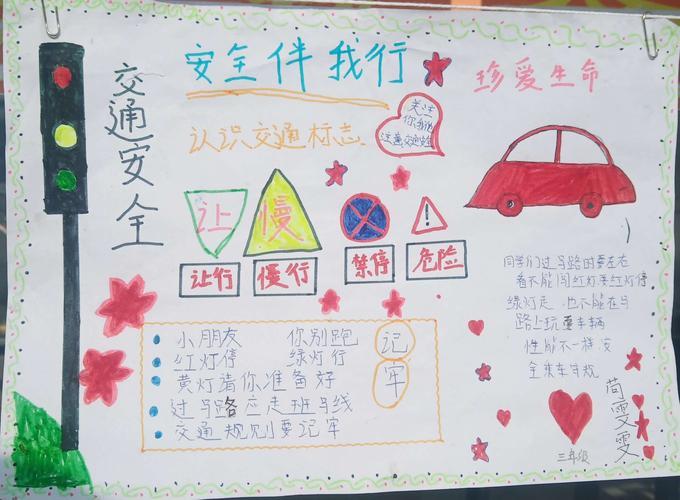 交通安全
安全伴我行
珍爱生命
认识交通标志
关注
让
慢
让行
慢行
禁停
危险
小朋友 你别跑
红灯停 绿灯行
黄灯请你准备好
过马路应走班马线
交通规则要记牢
记
牢
同学们过马路时要左右
看不能闯红灯要红灯停
绿灯走 也不能在马
路上玩耍车辆
性能不一样 安
全乘车
三年级
苟雯雯